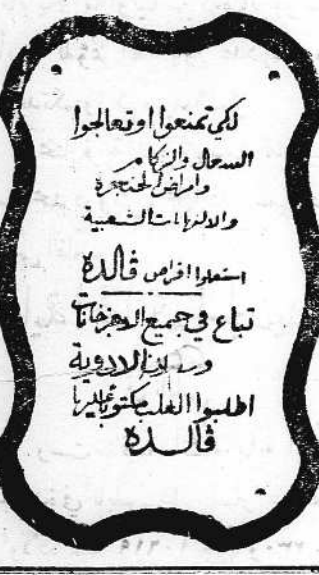 لكي تمنعوا او تعالجوا
السعال والزكام
وامراض الحنجرة
والالتهابات الشعبية
استعملوا اقراص ڤالده
تباع في جميع الاجزخانات
الادوية
اطلبوا العلب مكتوبا عليها
ڤالده